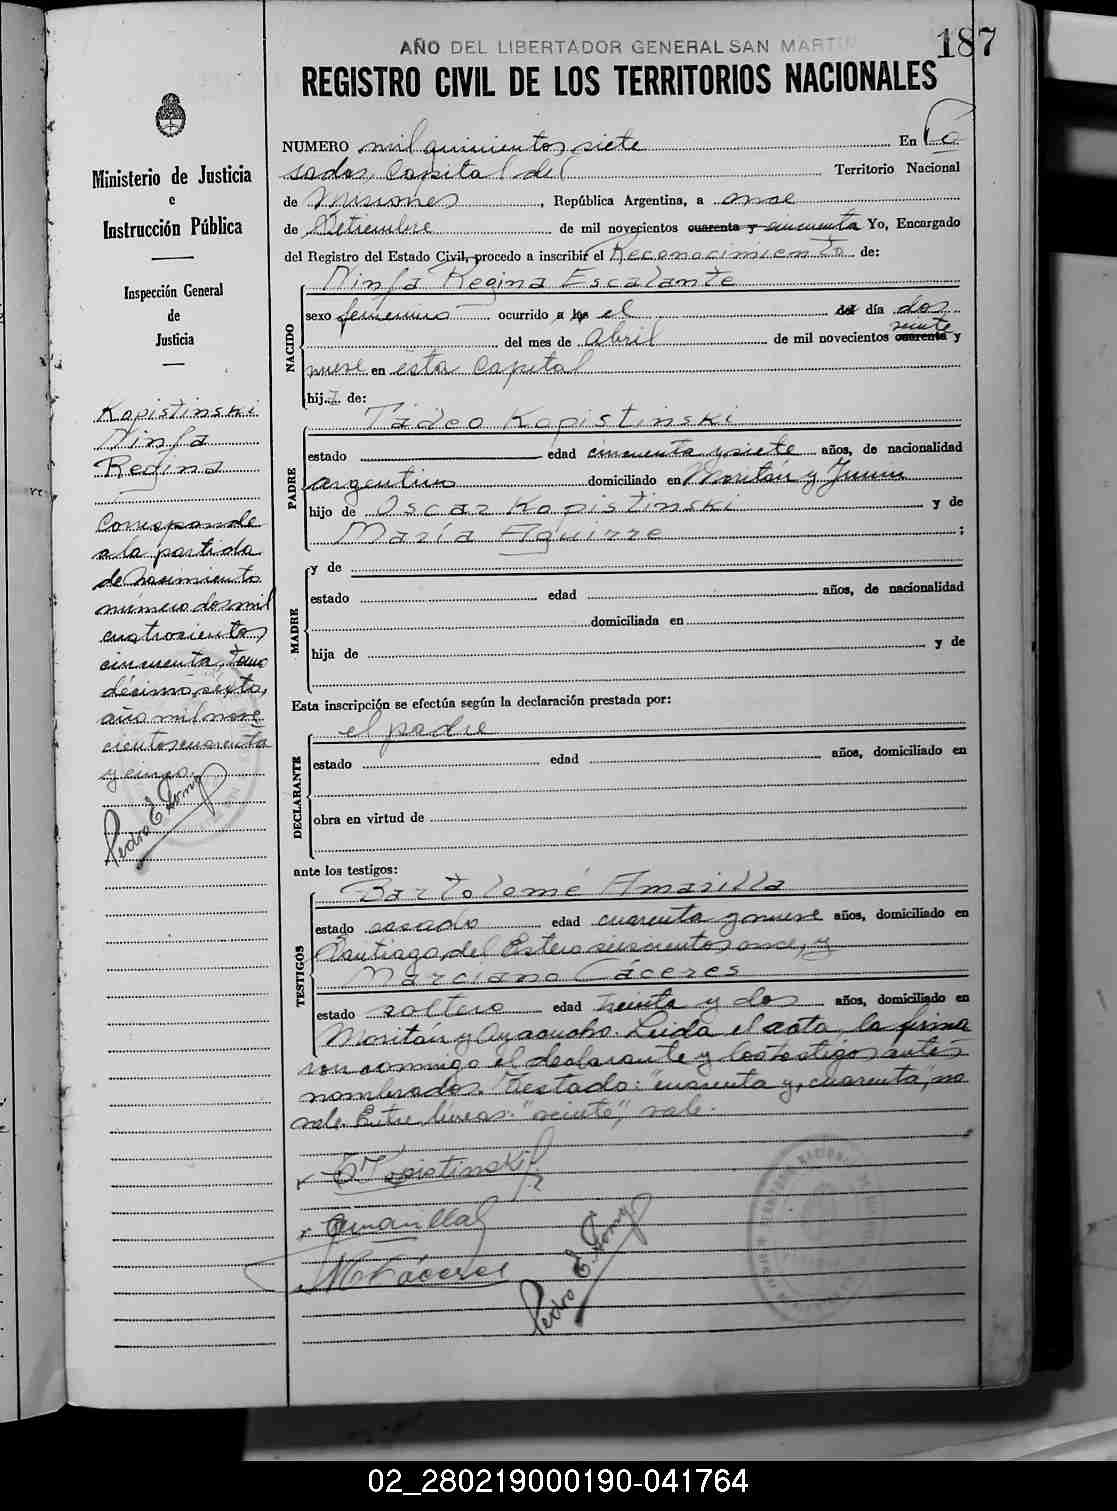 AÑO DEL LIBERTADOR GENERAL SAN MARTIN
187
REGISTRO CIVIL DE LOS TERRITORIOS NACIONALES
Ministerio de Justicia
e
Instrucción Pública
Inspección General
de
Justicia
Kopistinski
Ninfa
Regina
Corresponde
a la partida
de nacimiento
número dos mil
cuatrocientos
cincuenta, tomo
décimo sexto,
año mil nove
cientos cuarenta
y cinco.
Pedro E.
NUMERO mil quinientos siete En Po
sadas, Capital del Territorio Nacional
de Misiones, República Argentina, a once
de Setiembre de mil novecientos cuarenta y cincuenta Yo, Encargado
del Registro del Estado Civil, procedo a inscribir el Reconocimiento de:
NACIDO
Ninfa Regina Escalante
sexo femenino ocurrido a las el del día dos
veinte
del mes de Abril de mil novecientos cuarenta y
nueve en esta Capital
hija de:
PADRE
Tadeo Kopistinski
estado edad cincuenta y siete años, de nacionalidad
argentino domiciliado en Moritán y Junín
hijo de Oscar Kopistinski y de
María Aguirre ;
MADRE
y de
estado edad años, de nacionalidad
domiciliada en
hija de y de
Esta inscripción se efectúa según la declaración prestada por:
DECLARANTE
el padre
estado edad años, domiciliado en
obra en virtud de
ante los testigos:
TESTIGOS
Bartolomé Amarilla
estado casado edad cuarenta y nueve años, domiciliado en
Santiago del Estero seiscientos once, y
Marciano Cáceres
estado soltero edad treinta y dos años, domiciliado en
Moritán y Ayacucho. Leída el acta, la firma
con conmigo el declarante y los testigos antes
nombrados. Testado: "cuarenta y, cuarenta", no
vale. Entre líneas: "veinte", vale.
T Kopistinski
Amarilla
M Cáceres
Pedro E.
02_280219000190-041764